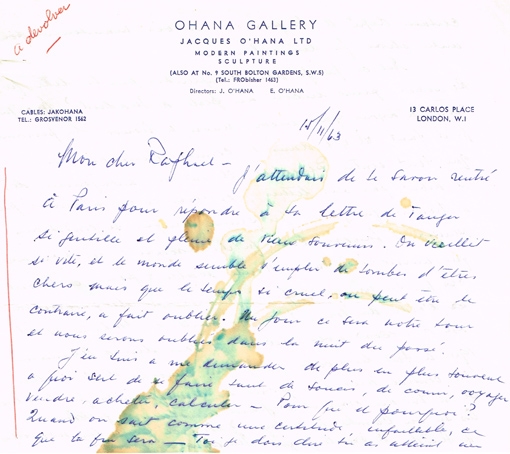 a devolver
OHANA GALLERY
JACQUES O'HANA LTD
MODERN PAINTINGS
SCULPTURE
(ALSO AT No. 9 SOUTH BOLTON GARDENS, S.W.5)
(Tel.: FRObisher 1463)
Directors: J. O'HANA E. O'HANA
CABLES: JAKOHANA
TEL.: GROSVENOR 1562
13 CARLOS PLACE
LONDON, W.1
15/11/63
Mon cher Raphael – J'attendais de te savoir rentré
à Paris pour répondre à ta lettre de Tanger
si gentille et pleine de vieux souvenirs. On vieillit
si vite, et le monde semble s'emplir de tombes d'êtres
chers mais que le temps si cruel, ou peut être le
contraire, a fait oublier. Un jour ce sera notre tour
et nous serons oubliés dans la nuit du passé.
J'en suis à me demander de plus en plus souvent
à quoi sert de se faire tant de soucis, de courir, voyager
vendre, acheter, calculer – Pour qui et pourquoi?
Quand on sait comme une certitude infaillible, ce
que ta fin sera – Toi je dois dire si as atteint un